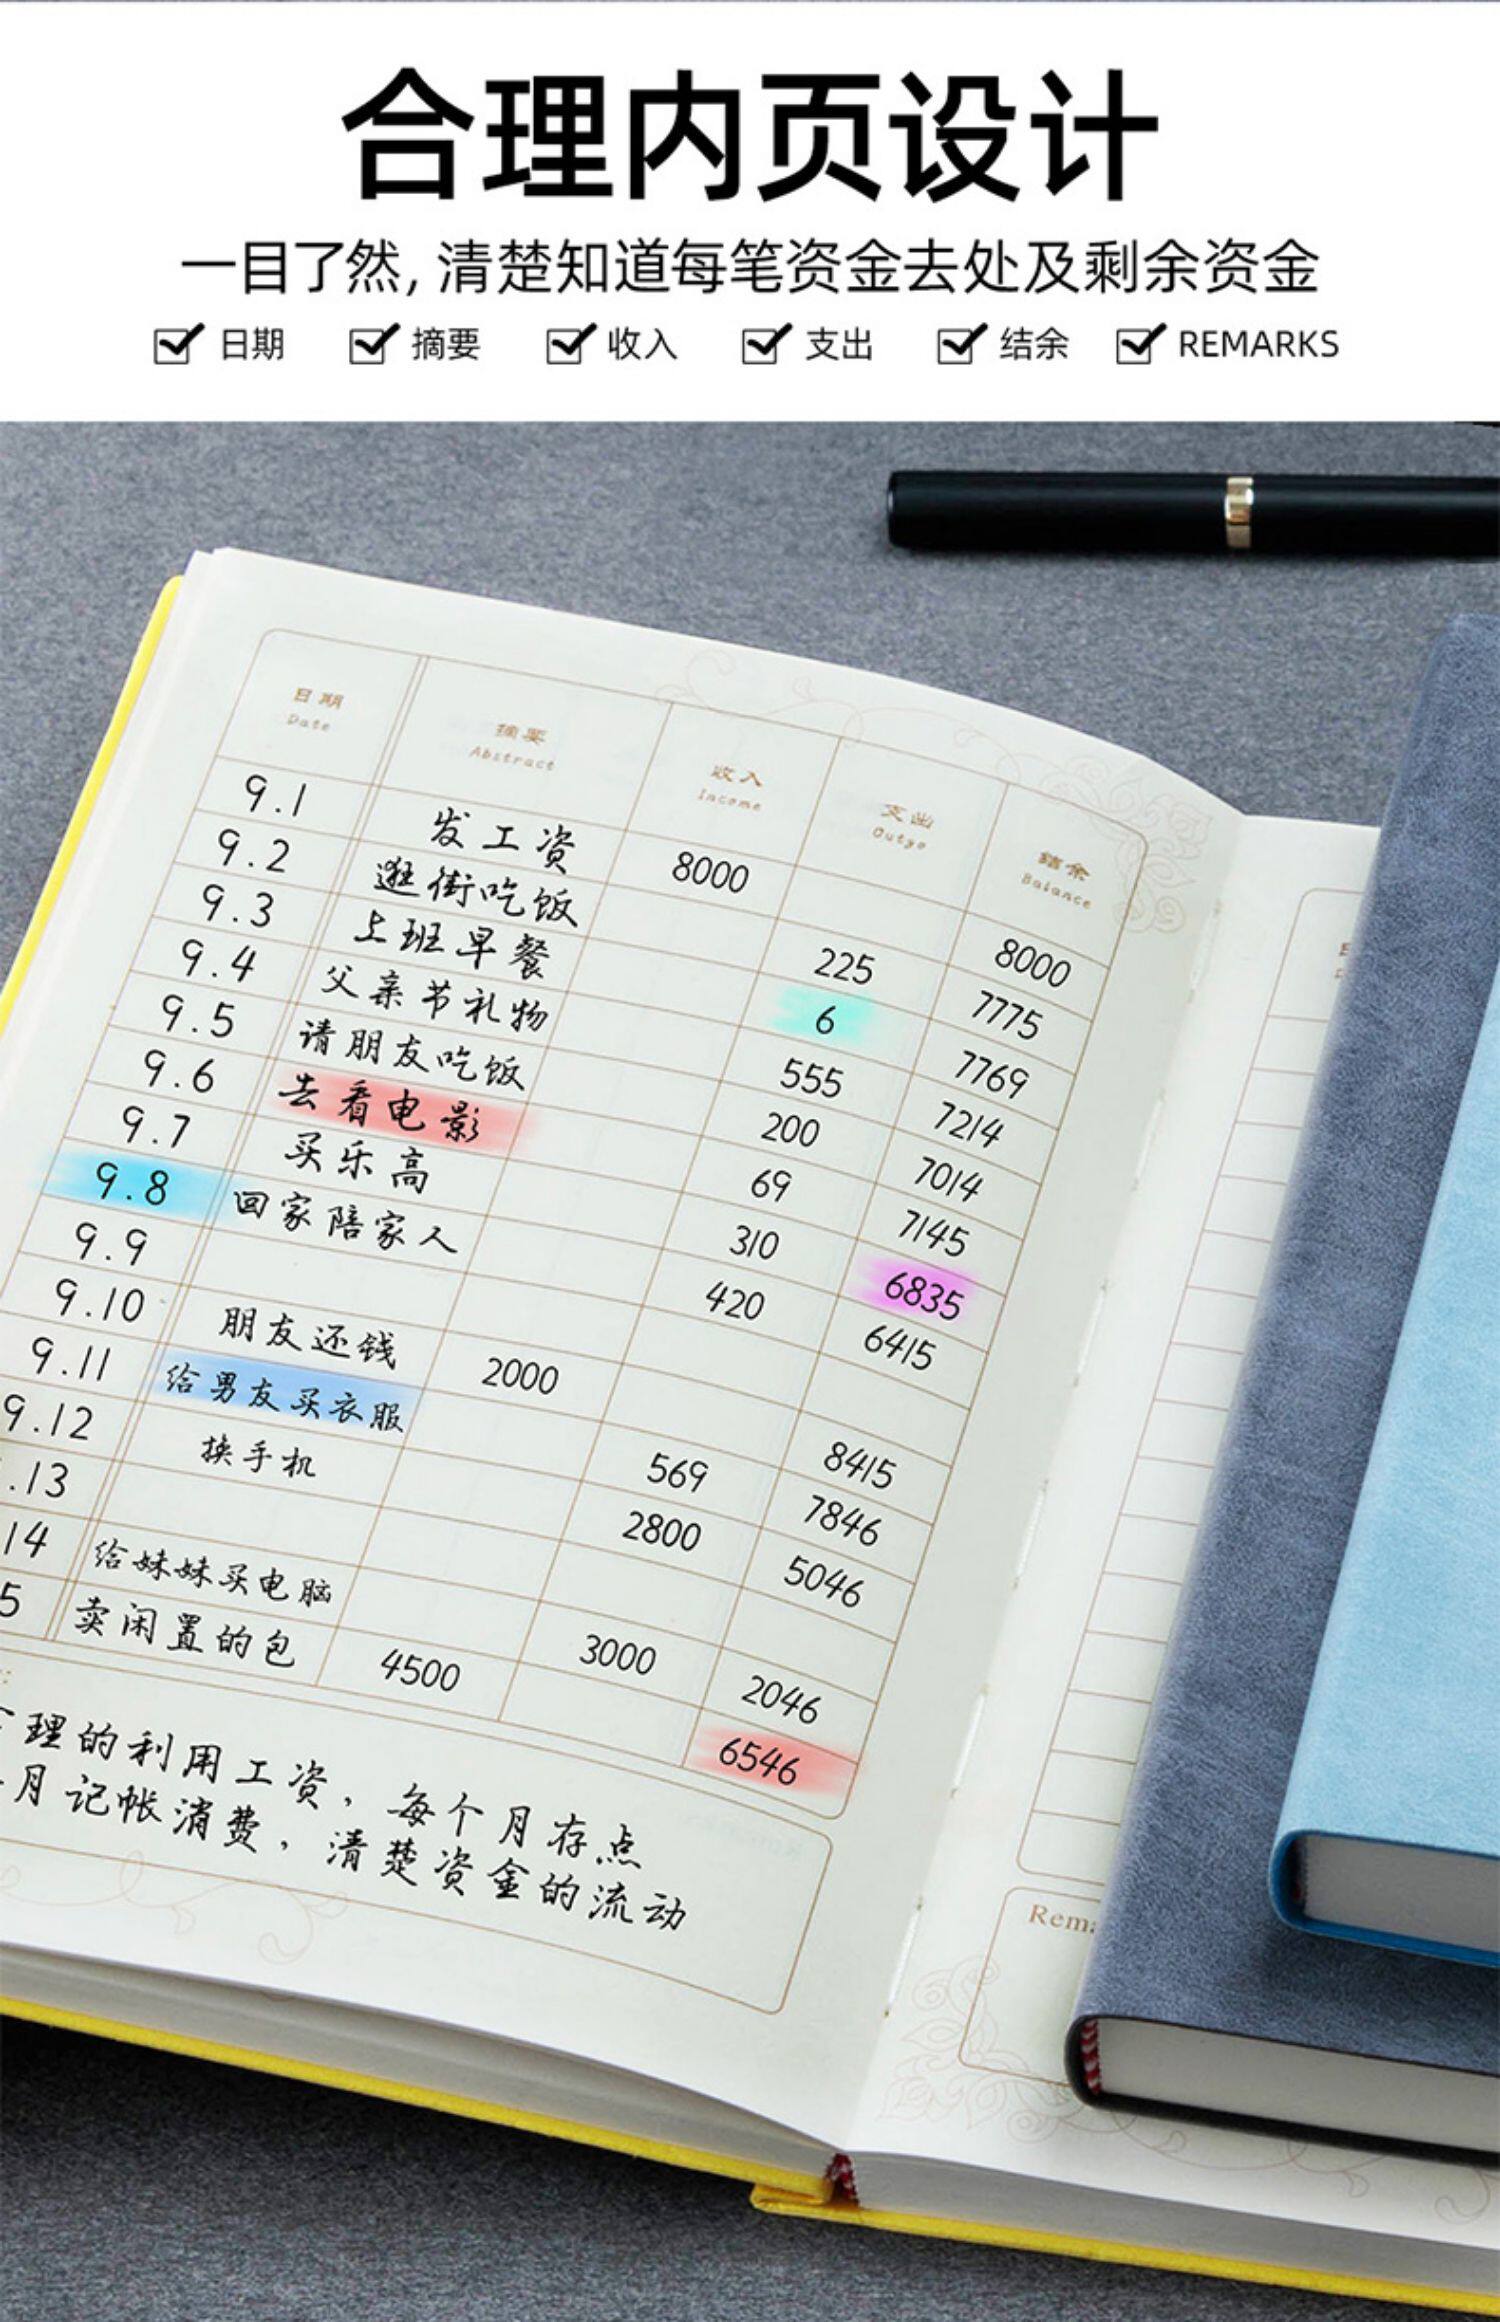 合理内页设计
一目了然,清楚知道每笔资金去处及剩余资金
日期 摘要 收入 支出 结余 REMARKS
日期 摘要 收入 支出 结余
Date Abstract Income Outgo Balance
9.1 发工资 8000 8000
9.2 逛街吃饭 225 7775
9.3 上班早餐 6 7769
9.4 父亲节礼物 555 7214
9.5 请朋友吃饭 200 7014
9.6 去看电影 69 7145
9.7 买乐高 310 6835
9.8 回家陪家人 420 6415
9.9
9.10 朋友还钱 2000 8415
9.11 给男友买衣服 569 7846
9.12 换手机 2800 5046
.13
14 给妹妹买电脑 3000 2046
5 卖闲置的包 4500 6546
理的利用工资,每个月存点
月记帐消费,清楚资金的流动
Rema